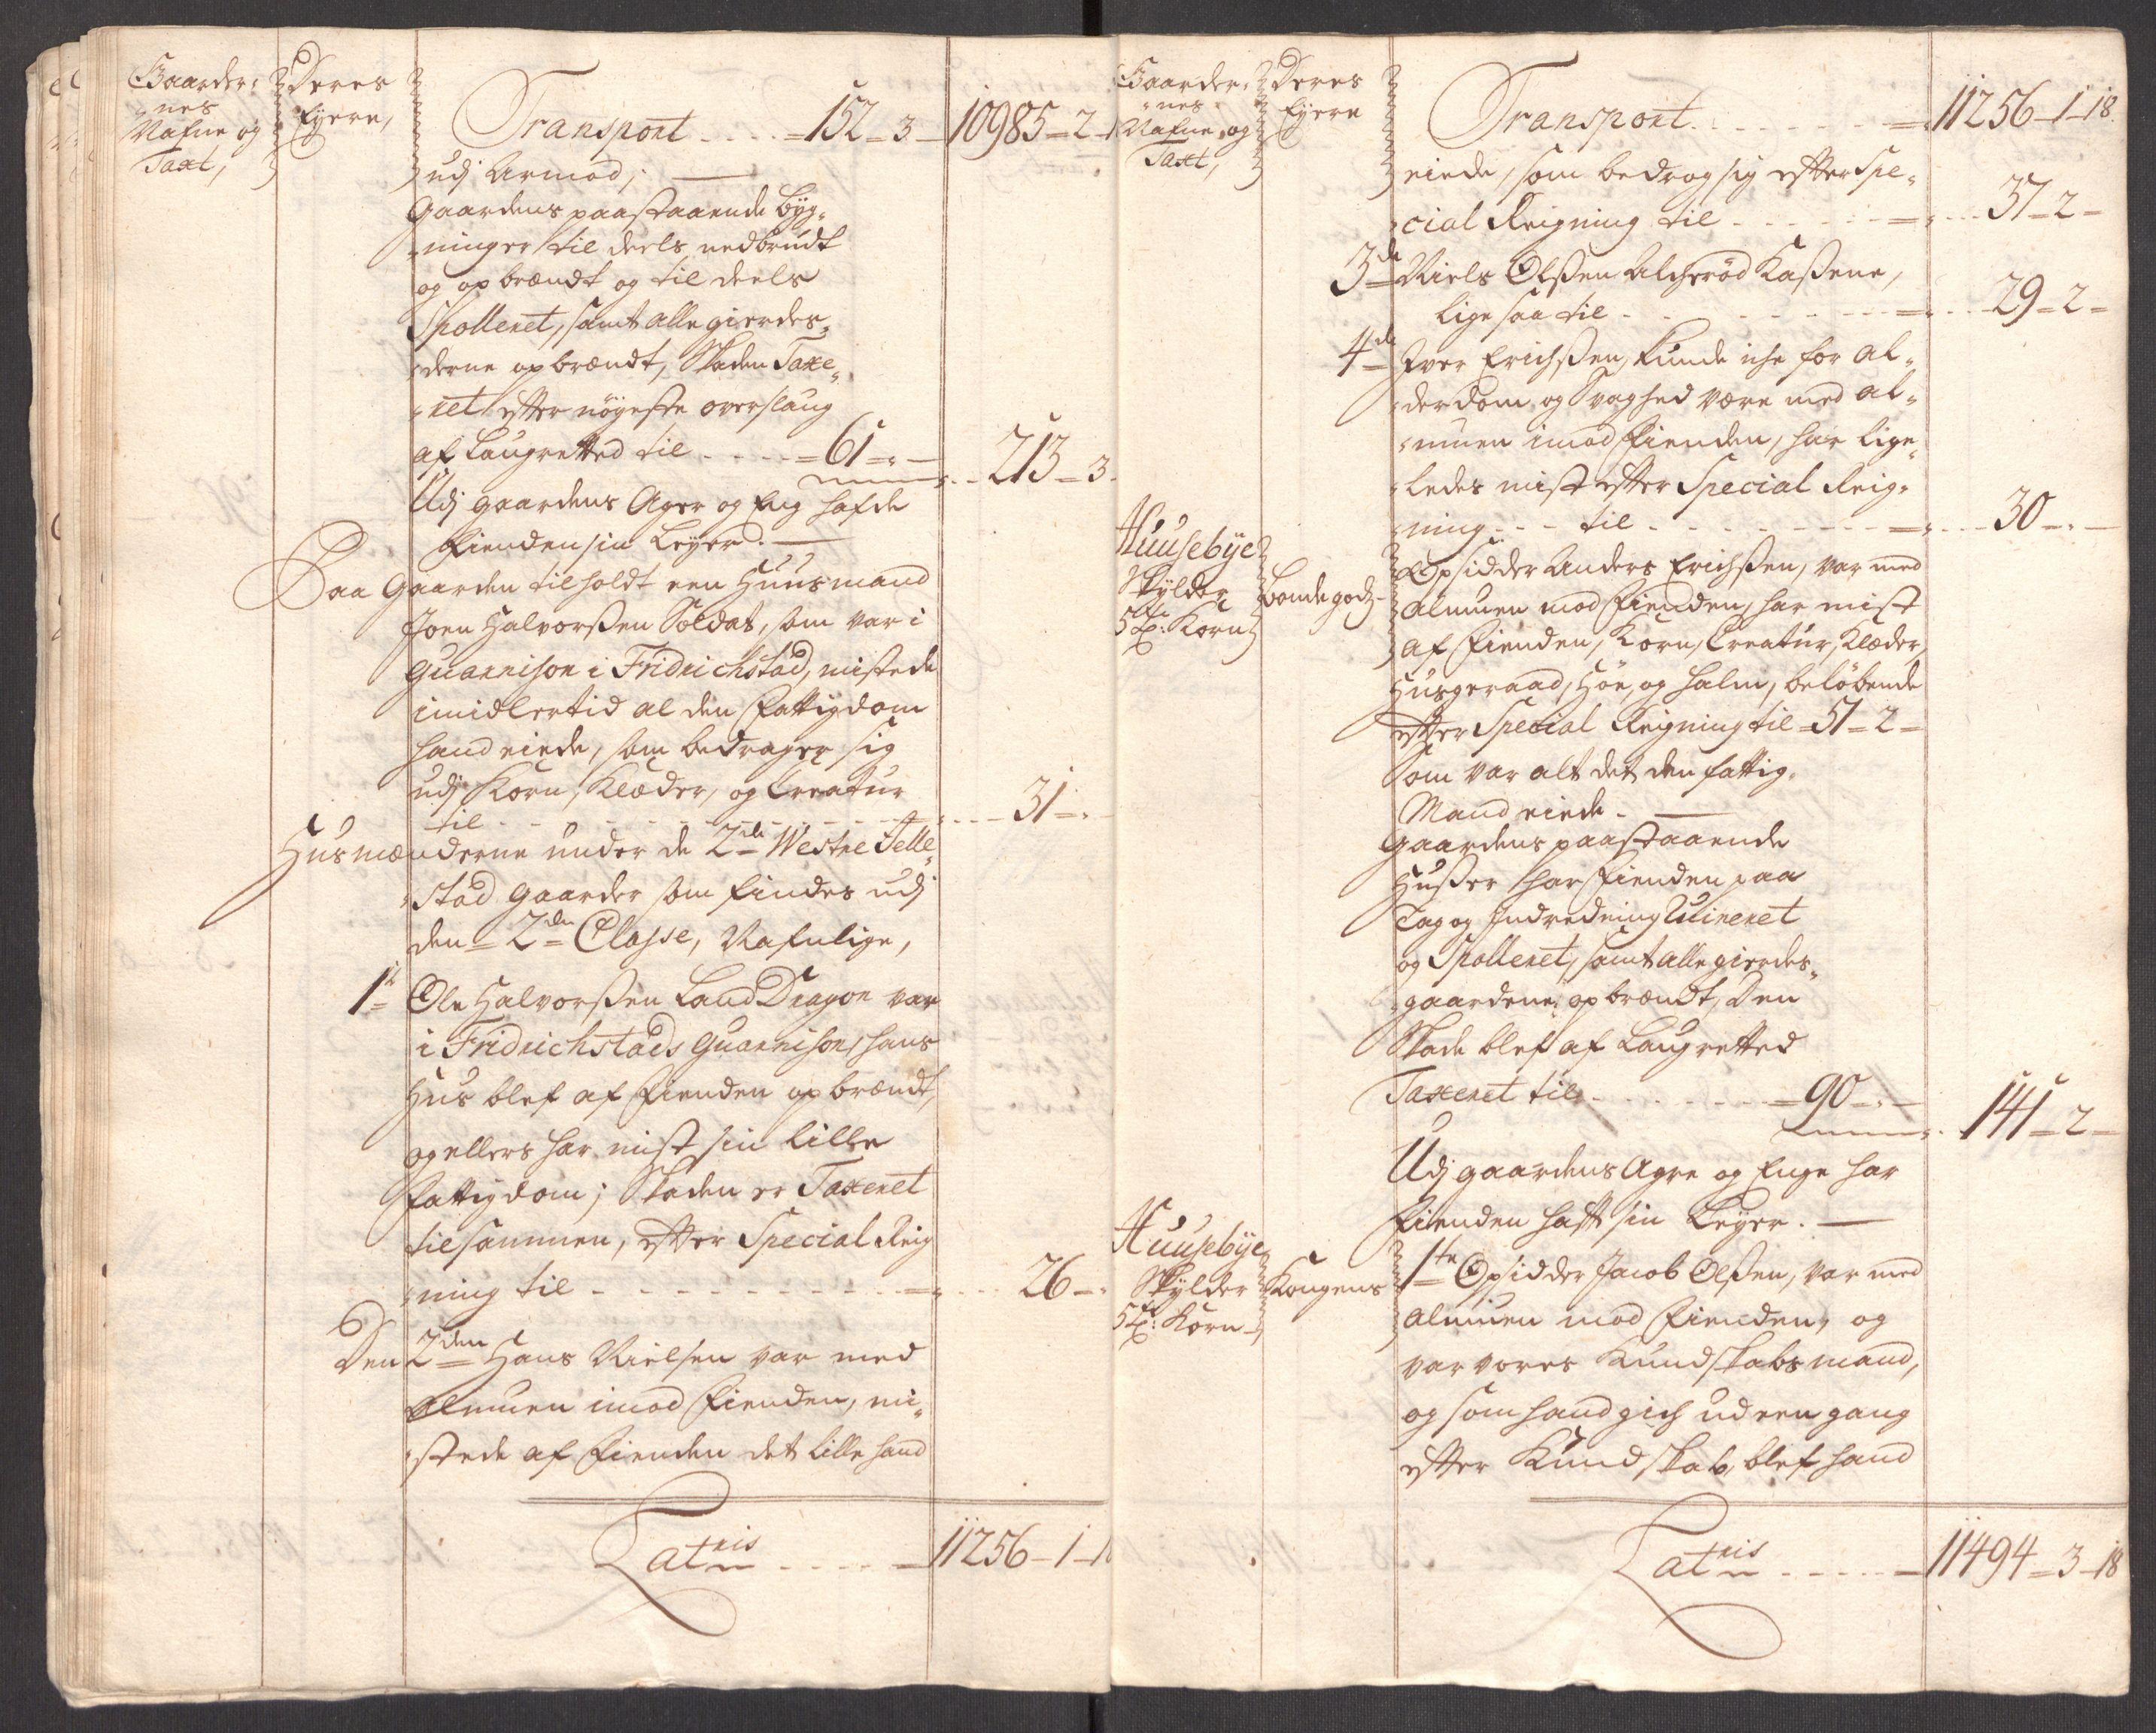 Gaarder-
nes
Nafne og
Taxt,
Deres
Eyere,
Transport - - - - 152 - 3 - 10985 - 2 -
udj Armod; —
Gaardens paastaaende byg-
ninger til deels nedbrudt
og op brændt og til deels
Spolleret, samt alle gierdes-
derne op brændt, Skaden Taxe-
ret efter nøyeste overslaug
af Laugretted til - - - - 61 - - 213 - 3 -
Udj gaardens Ager og Eng hafde
Fienden sin Leyer. —
Paa Gaarden tilholdt een Huusmand
Joen Halvorßen Soldat, som var i
Guarnison i Fridrichstad, mistede
imidlertid al den Fattigdom
hand eiede, som bedrager sig
udj Korn, Klæder, og Creatur
til - - - - - - - - 31 - -
Husmænderne under de 2de Westre Jelle-
stad gaarder som findes udj
den 2den Classe, Nafnlige,
1te Ole Halvorßen Land Dragon var
i Fridrichstads Guarnison, hans
Hus blef af Fienden op brændt,
og ellers har mist sin lille
Fattigdom; Skaden er Taxeret
tilsammen, efter Special Reig
ning til - - - - - - - - 26 - -
Den 2den Hans Nielsen var med
Almuen imod Fienden, mi-
stede af Fienden det lille hand
Latris - - - - 11256 - 1 - 18
Gaarder-
nes
Nafne og
Taxt,
Deres
Eyere
Transport - - - - - - 11256 - 1 - 18.
eiede, som bedrog sig efter Spe-
cial Reigning til - - - - - 37 - 2 -
3de Niels Olßen Kaßene,
lige saa til - - - - - - 29 - 2 -
4de Iver Erichßen, kunde iche for Al-
derdom og Svaghed være med Al-
muen imod Fienden, har lige-
ledes mist efter Special Reig-
ning - - - til - - - - - - 30 - -
Huusebÿe
Skylder
5 Lp: Korn
bonde godz
Opsidder Anders Erichßen, var med
Almuen mod Fienden, har mist
af Fienden, Korn, Creatur, Klæder,
Husgeraad, Høe, og halm, beløbende
efter Special Reigning til 51 - 2 -
Som var alt det den fattig
Mand eiede. —
Gaardens paastaaende
Hußer har Fienden paa
Tag og Indredning Ruineret
og Spolleret, samt alle gierdes-
gaardene op brændt, Den
Skade blef af Laugretted
Taxeret til - - - - - - 90 - - 141 - 2 -
Udj gaardens Agre og Enge har
Fienden haft sin Leyer. —
Huusebÿe
Skylder
5 Lp: Korn
Kongens
1te Opsidder Jacob Olßen, var med
Almuen mod Fienden, og
var vores Kundskabs mand,
og som hand gich ud een gang
efter Kundskab, blef hand
Latris - - - - - 11494 - 3 - 18